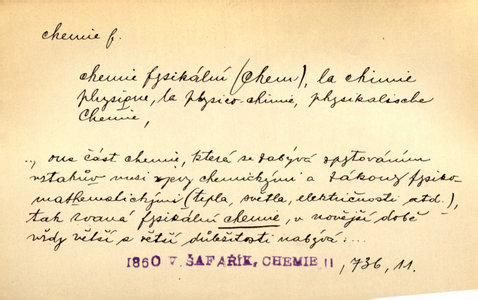 chemie f.
chemie fysikální (Chem), la chimie
physique, la physico-chimie, physikalische
Chemie,
„ ona část chemie, která se zabývá zpytováním
vztahův mezi zjevy chemickými a zákony fysiko-
mathematickými (tepla, světla, električnosti atd.),
tak zvaná fysikální chemie, v novější době
vždy větší a větší důležitosti nabývá ...
1860 V. ŠAFAŘÍK, CHEMIE II , 736, 11.